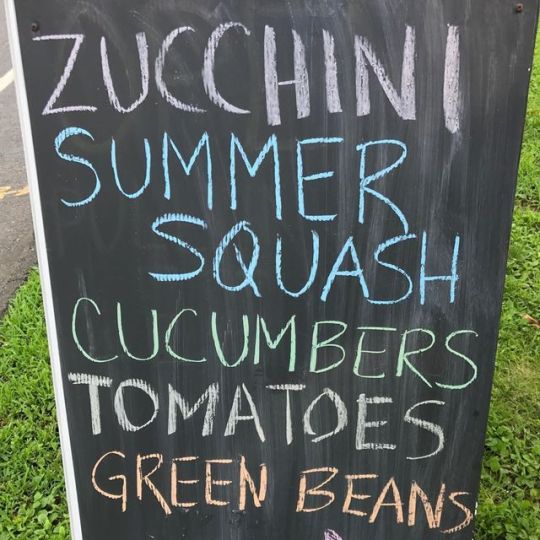 ZUCCHINI
SUMMER
SQUASH
CUCUMBERS
TOMATOES
GREEN BEANS